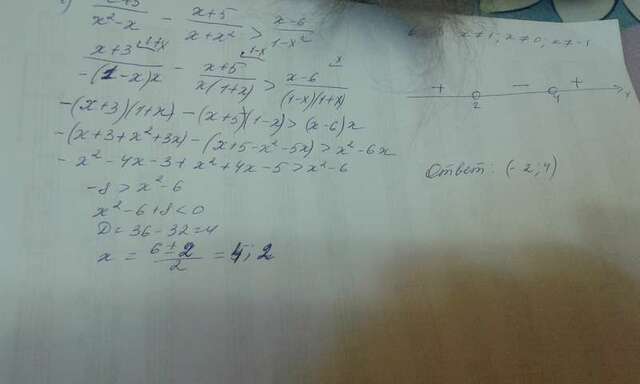 (x+3)/(x²-x) - (x+5)/(x+x²) > (x-6)/(1-x²)
x≠1, x≠0, x≠-1
(x+3)/(-(1-x)x) - (x+5)/(x(1+x)) > (x-6)/((1-x)(1+x))
-(x+3)(1+x) - (x+5)(1-x) > (x-6)x
-(x+3+x²+3x) - (x+5-x²-5x) > x²-6x
-x²-4x-3+x²+4x-5 > x²-6
-8 > x²-6
x²-6+8<0
D=36-32=4
x = (6±2)/2 = 4; 2
+ - +
2 4 x
Ответ: (-2; 4)